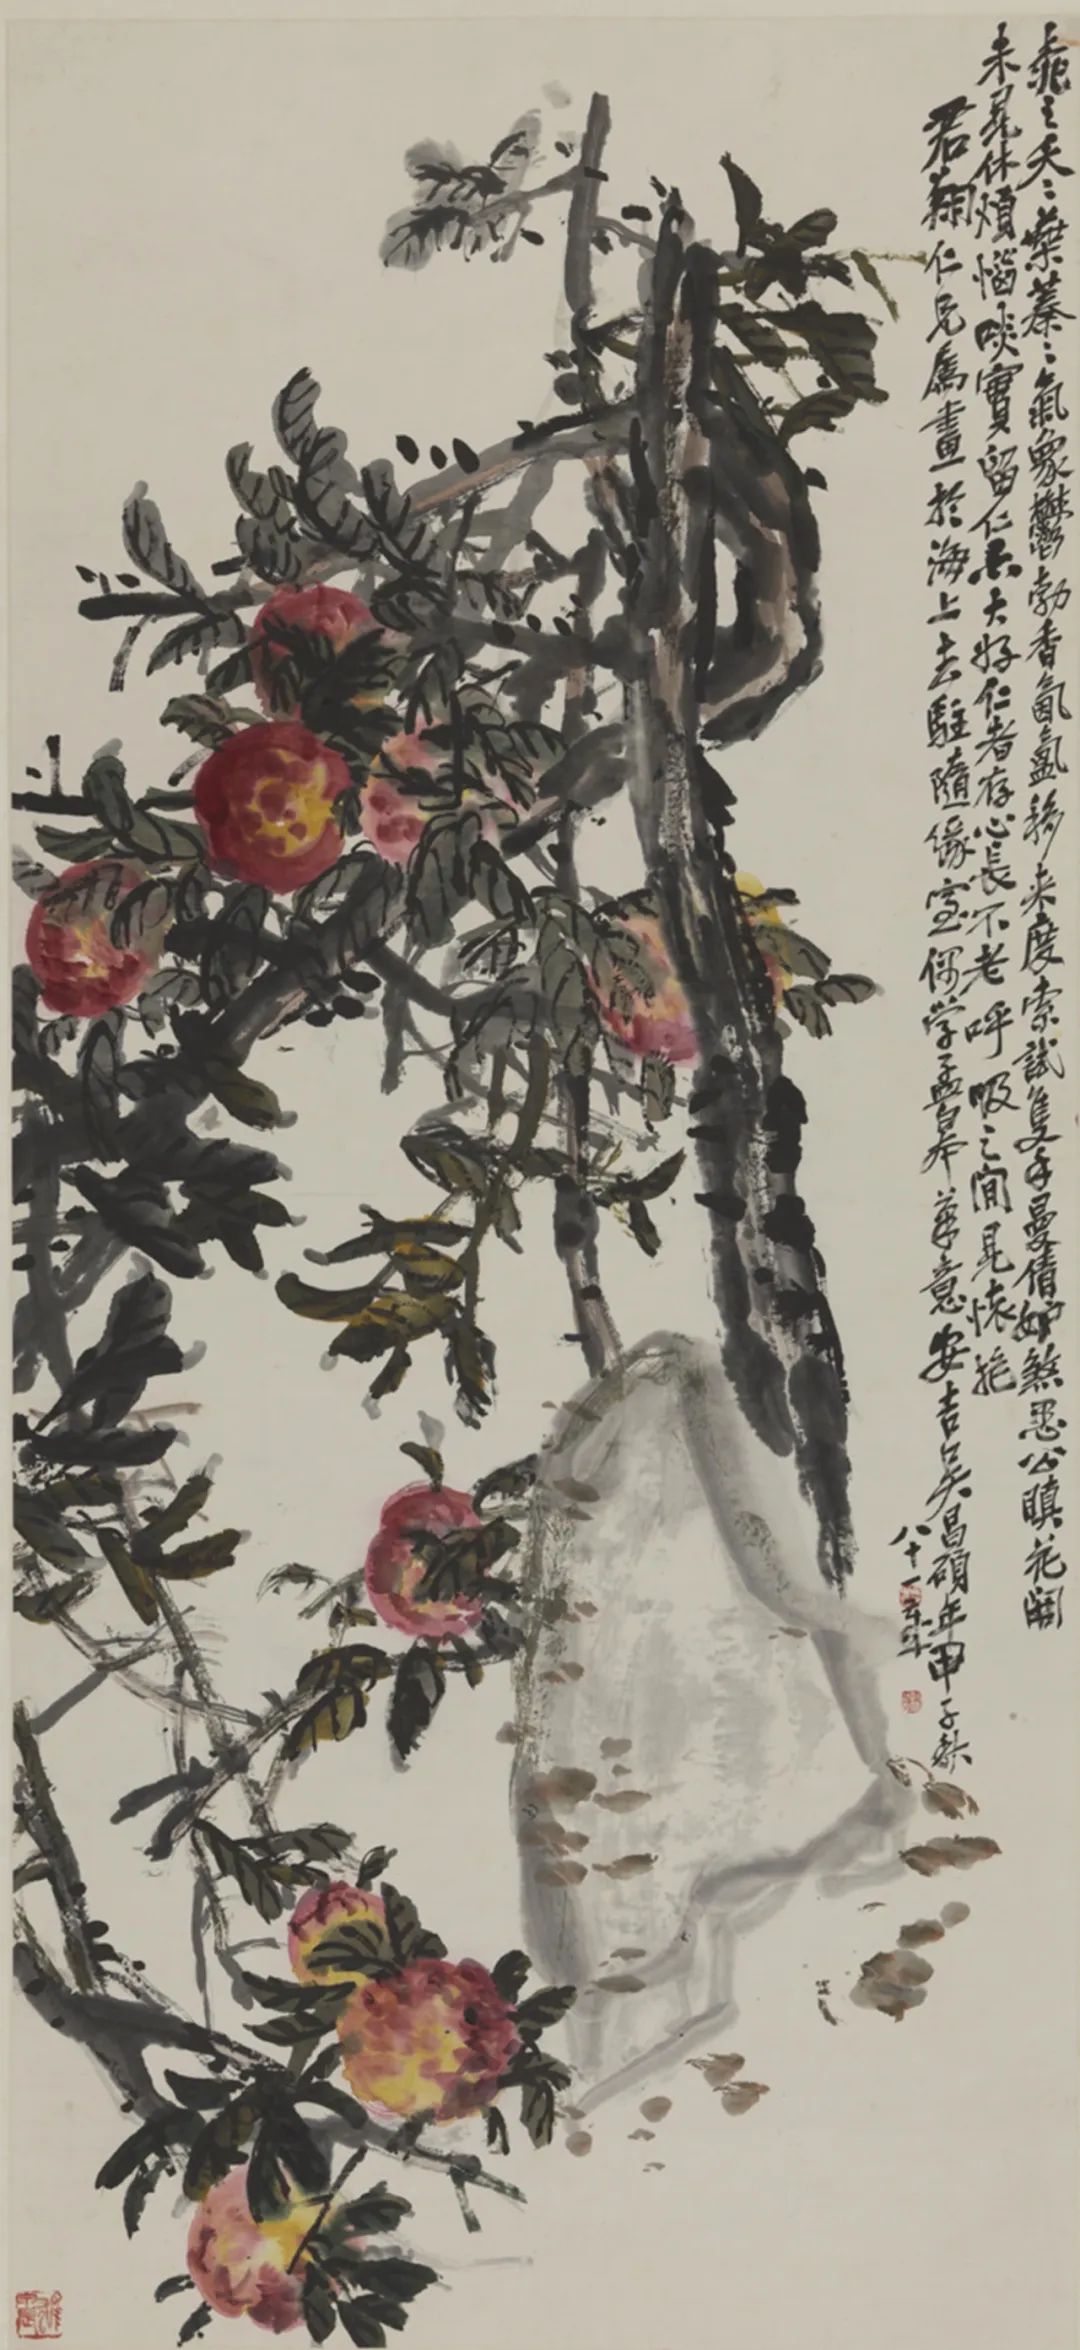 桃之夭〻葉蓁〻氣象鬱勃香氤氳移来度索試隻手曼倩妒煞愚公瞋花開
未晃休煩惱啖實留仁亦大好仁者存心長不老呼吸之間見懷抱
君蘜仁兄屬畫於海上去駐隨緣室偶學孟皋筆意安吉吳昌碩年甲子秋
八十一